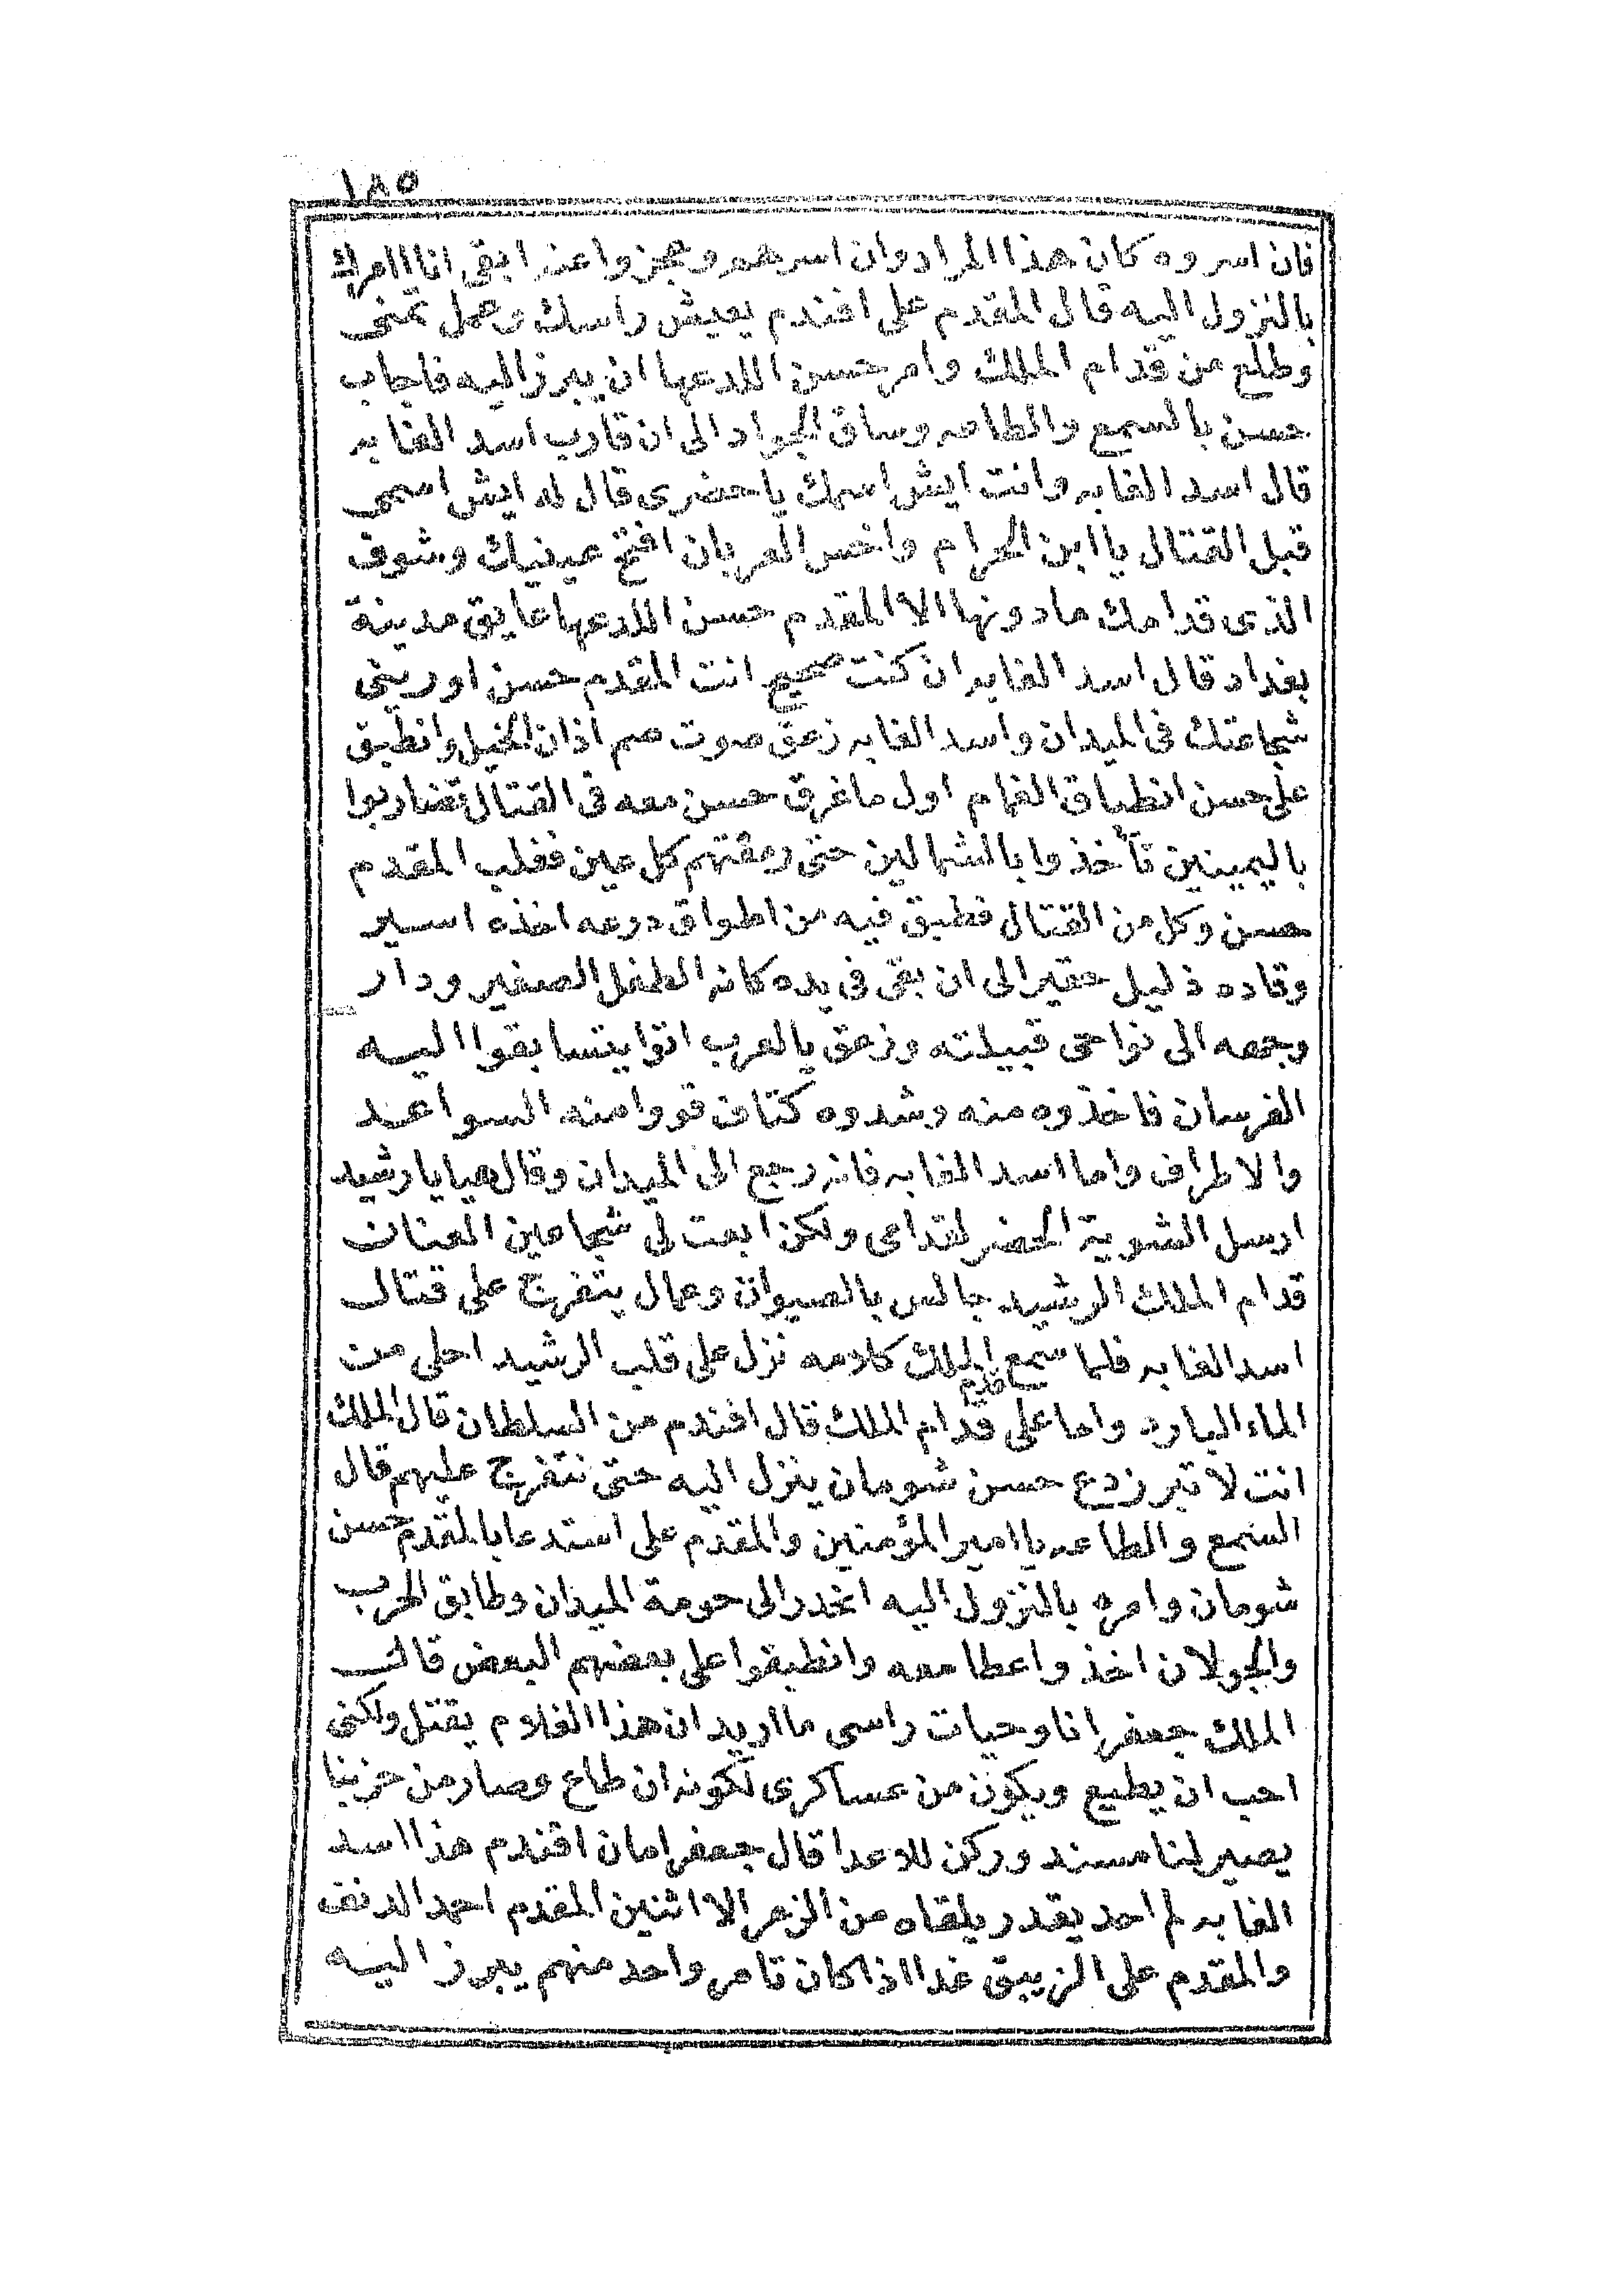 ١٨٥
فان اسروه كان هذا المراد وان اسرهم وعجزوا عنه ابقى انا اامرك
بالنزول اليه قال المقدم على افندم يعيش راسك وعمل تمنى
وطلع من قدام الملك وامر حسن اللدعها ان يبرز اليه فاجاب
حسن بالسمع والطاعه وساق الجواد الى ان قارب اسد الغابه
قال اسد الغابه وانت ايش اسمك يا حضرى قال له ايش اسمى
قبل القتال يا ابن الحرام واخس العربان افتح عينيك وشوف
الذى قدامك ما دونها الا المقدم حسن اللدعها عايق مدينة
بغداد قال اسد الغابه ان كنت صحيح انت المقدم حسن اورينى
شجاعتك فى الميدان واسد الغابه زعق صوت صم اذان الخيل وانطبق
على حسن انطباق الغمام اول ما غرق حسن معه فى القتال تضاربوا
باليمينين تأخذوا بالشمالين حتى رمقتهم كل عين فغلب المقدم
حسن وكل من القتال فطبق فيه من اطواق درعه اخذه اسير
وقاده ذليل حقير الى ان بقى فى يده كانه الطفل الصغير ودار
وجهه الى نواحى قبيلته وزعق بالعرب اتوا يتسابقوا اليه
الفرسان فاخذوه منه وشدوه كتاف قووا منه السواعد
والاطراف واما اسد الغابه فانه رجع الى الميدان وقال هيا يا رشيد
ارسل الشوية الحضر لقدامى ولكن ابعت لى شجاعين العنان
قدام الملك الرشيد جالس بالصيوان وعمال يتفرج على قتال
اسد الغابه فلما سمع الملك كلامه نزل على قلب الرشيد احلى من
الماء البارد واما على قدام الملك قال افندم من السلطان قال الملك
انت لا تبرز دع حسن شومان ينزل اليه حتى نتفرج عليهم قال
السمع والطاعه يا امير المؤمنين والمقدم على استدعا بالمقدم حسن
شومان وامره بالنزول اليه انحدر الى حومة الميدان وطابق الحرب
والجولان اخذ واعطا معه وانطبقوا على بعضهم البعض قال
الملك جعفر انا وحيات راسى ما اريد ان هذا الغلام يقتل ولكنى
احب ان يطيع ويكون من عساكرى لكونه ان طاع وصار من حزبنا
يصير لنا مسند وركن للاعدا قال جعفر امان افندم هذا اسد
الغابه لم احد يقدر يلقاه من الزعر الا اثنين المقدم احمد الدنف
والمقدم على الزيبق غدا اذا كان تامر واحد منهم يبرز اليه